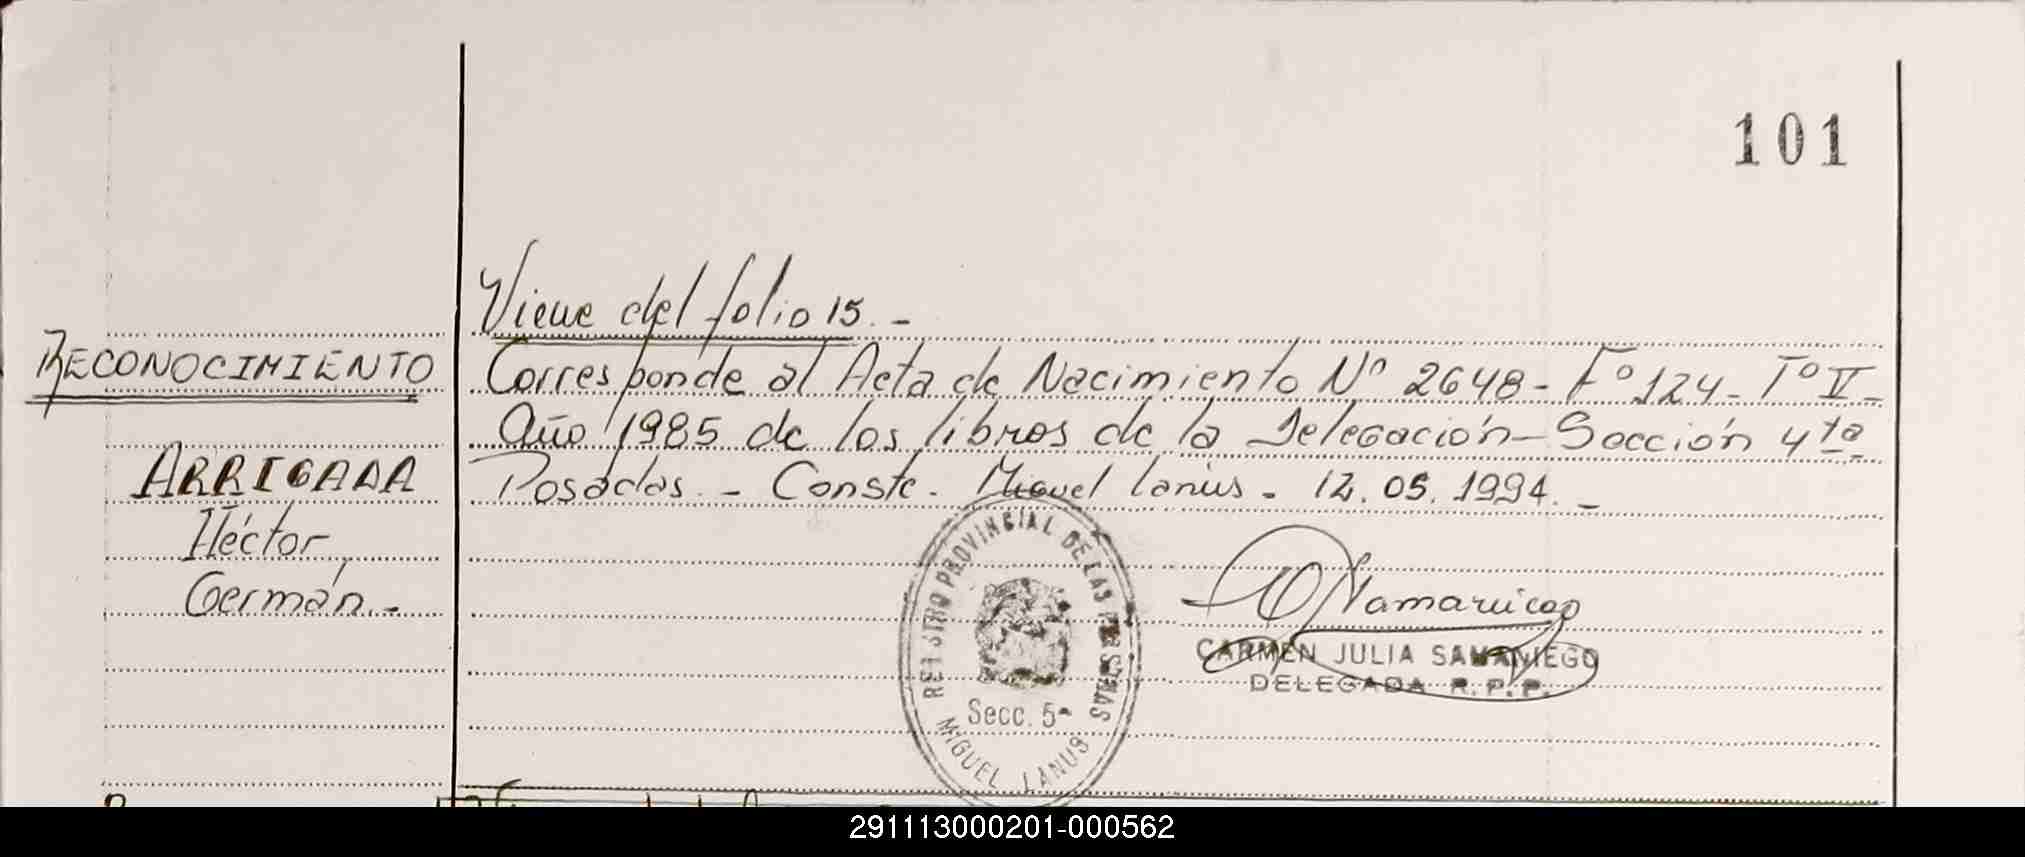 101
Viene del folio 15. -
RECONOCIMIENTO
Corresponde al Acta de Nacimiento Nº 2648 - Fº 124 - Tº V -
Año 1985 de los libros de la Delegación - Sección 4ta
ARRIGADA
Posadas. - Conste. Miguel Lanús. 12. 05. 1994. -
Héctor
Germán. -
REGISTRO PROVINCIAL DE LAS PERSONAS
Secc. 5ª
MIGUEL LANUS
CARMEN JULIA SAMANIEGO
DELEGADA R.P.P.
291113000201-000562